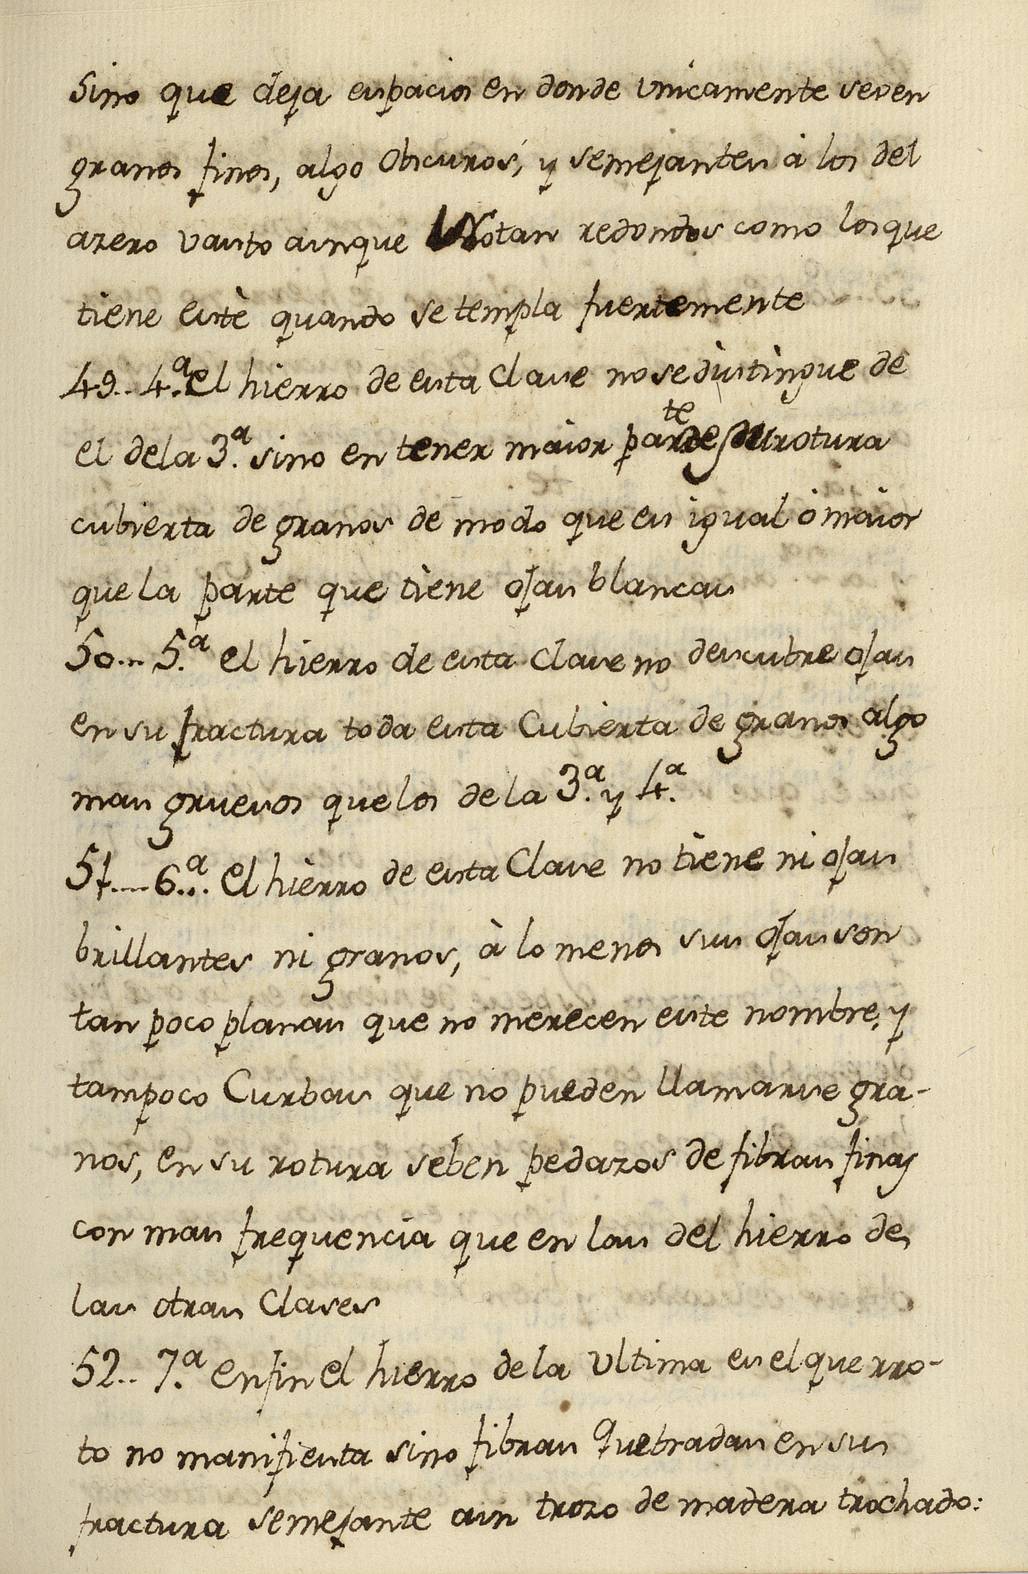 sino que deja espacios en donde unicamente seven
granos finos, algo Obscuros, y semejantes à los del
azero vasto aunque no tan redondos como los que
tiene estè quando se templa fuertemente
49.. 4.ª el hierro de esta Clase no se distingue de
el dela 3.ª sino en tener maior parte de su rotura
cubierta de granos de modo que es igual ò maior
que la parte que tiene ojas blancas
50... 5.ª el hierro de esta Clase no descubre ojas
en su fractura toda esta Cubierta de granos algo
mas gruesos que los de la 3.ª y 4.ª
51.... 6.ª.. el hierro de esta Clase no tiene ni ojas
brillantes ni granos, à lo menos sus ojas son
tan poco planas que no merecen este nombre, y
tampoco Curbas que no pueden llamarse gra-
nos, en su rotura seben pedazos de fibras finas
con mas frequencia que en las del hierro de
las otras Clases
52.. 7.ª enfin el hierro de la Ultima es el que rro-
to no manifiesta sino fibras Quebradas en su
fractura semejante aun trozo de madera trochado: